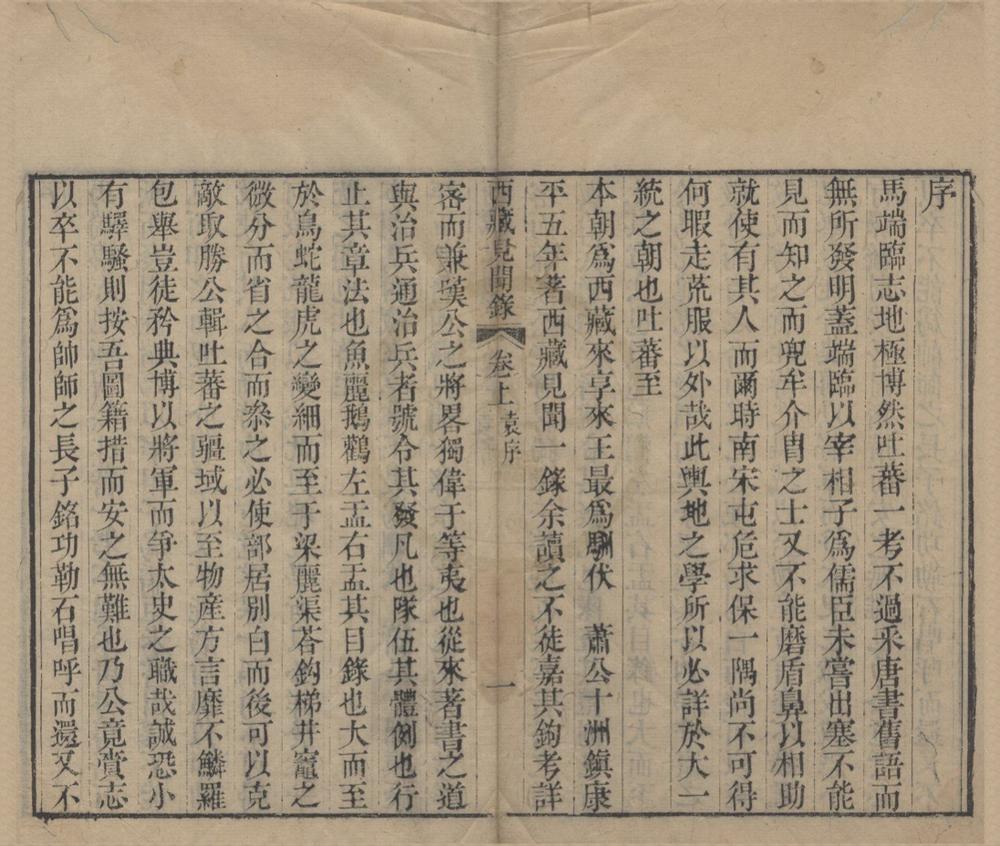 序
馬端臨志地極博然吐蕃一考不過采唐書舊語而
無所發明蓋端臨以宰相子爲儒臣未嘗出塞不能
見而知之而兜牟介胄之士又不能磨盾鼻以相助
就使有其人而爾時南宋屯危求保一隅尚不可得
何暇走荒服以外哉此輿地之學所以必詳於大一
統之朝也吐蕃至
本朝爲西藏來享來王最爲馴伏 蕭公十洲鎭康
平五年著西藏見聞一錄余讀之不徒嘉其鉤考詳
西藏見聞錄 卷上 袁序 一
密而兼嘆公之將畧獨偉于等夷也從來著書之道
與治兵通治兵者號令其發凡也隊伍其體例也行
止其章法也魚麗鵝鸛左盂右盂其目錄也大而至
於鳥蛇龍虎之變細而至于梁麗渠荅鈎梯井竈之
微分而省之合而叅之必使部居別白而後可以克
敵取勝公輯吐蕃之疆域以至物産方言靡不鱗羅
包舉豈徒矜典博以將軍而爭太史之職哉誠恐小
有驛騷則按吾圖籍措而安之無難也乃公竟賫志
以卒不能爲帥師之長子銘功勒石唱呼而還又不